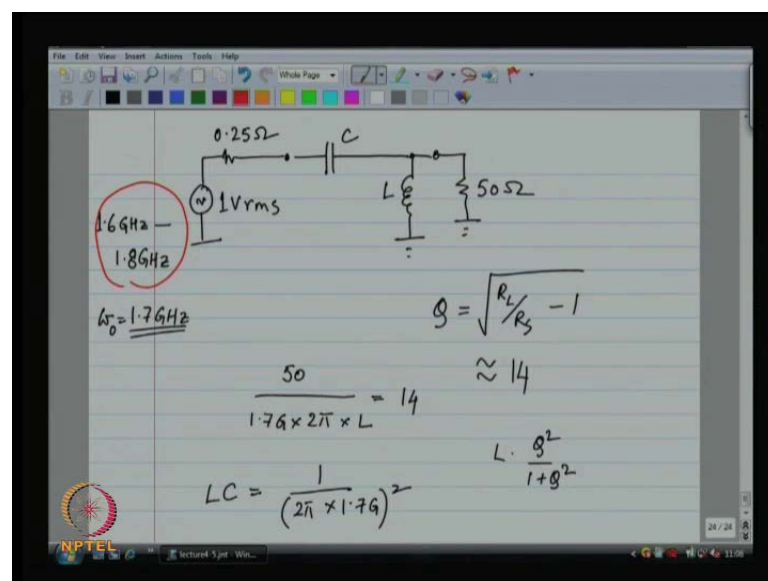 File Edit View Insert Actions Tools Help
Whole Page
B I
0.25Ω
C
1Vrms
L
50Ω
1.6GHz —
1.8GHz
ω₀ = 1.7GHz
Q = √(R_L/R_S − 1)
≈ 14
50 / (1.7G × 2π × L) = 14
L · Q² / (1+Q²)
LC = 1 / (2π × 1.7G)²
24 / 24
NPTEL
lecture4-5.jnt - Win...
11:08